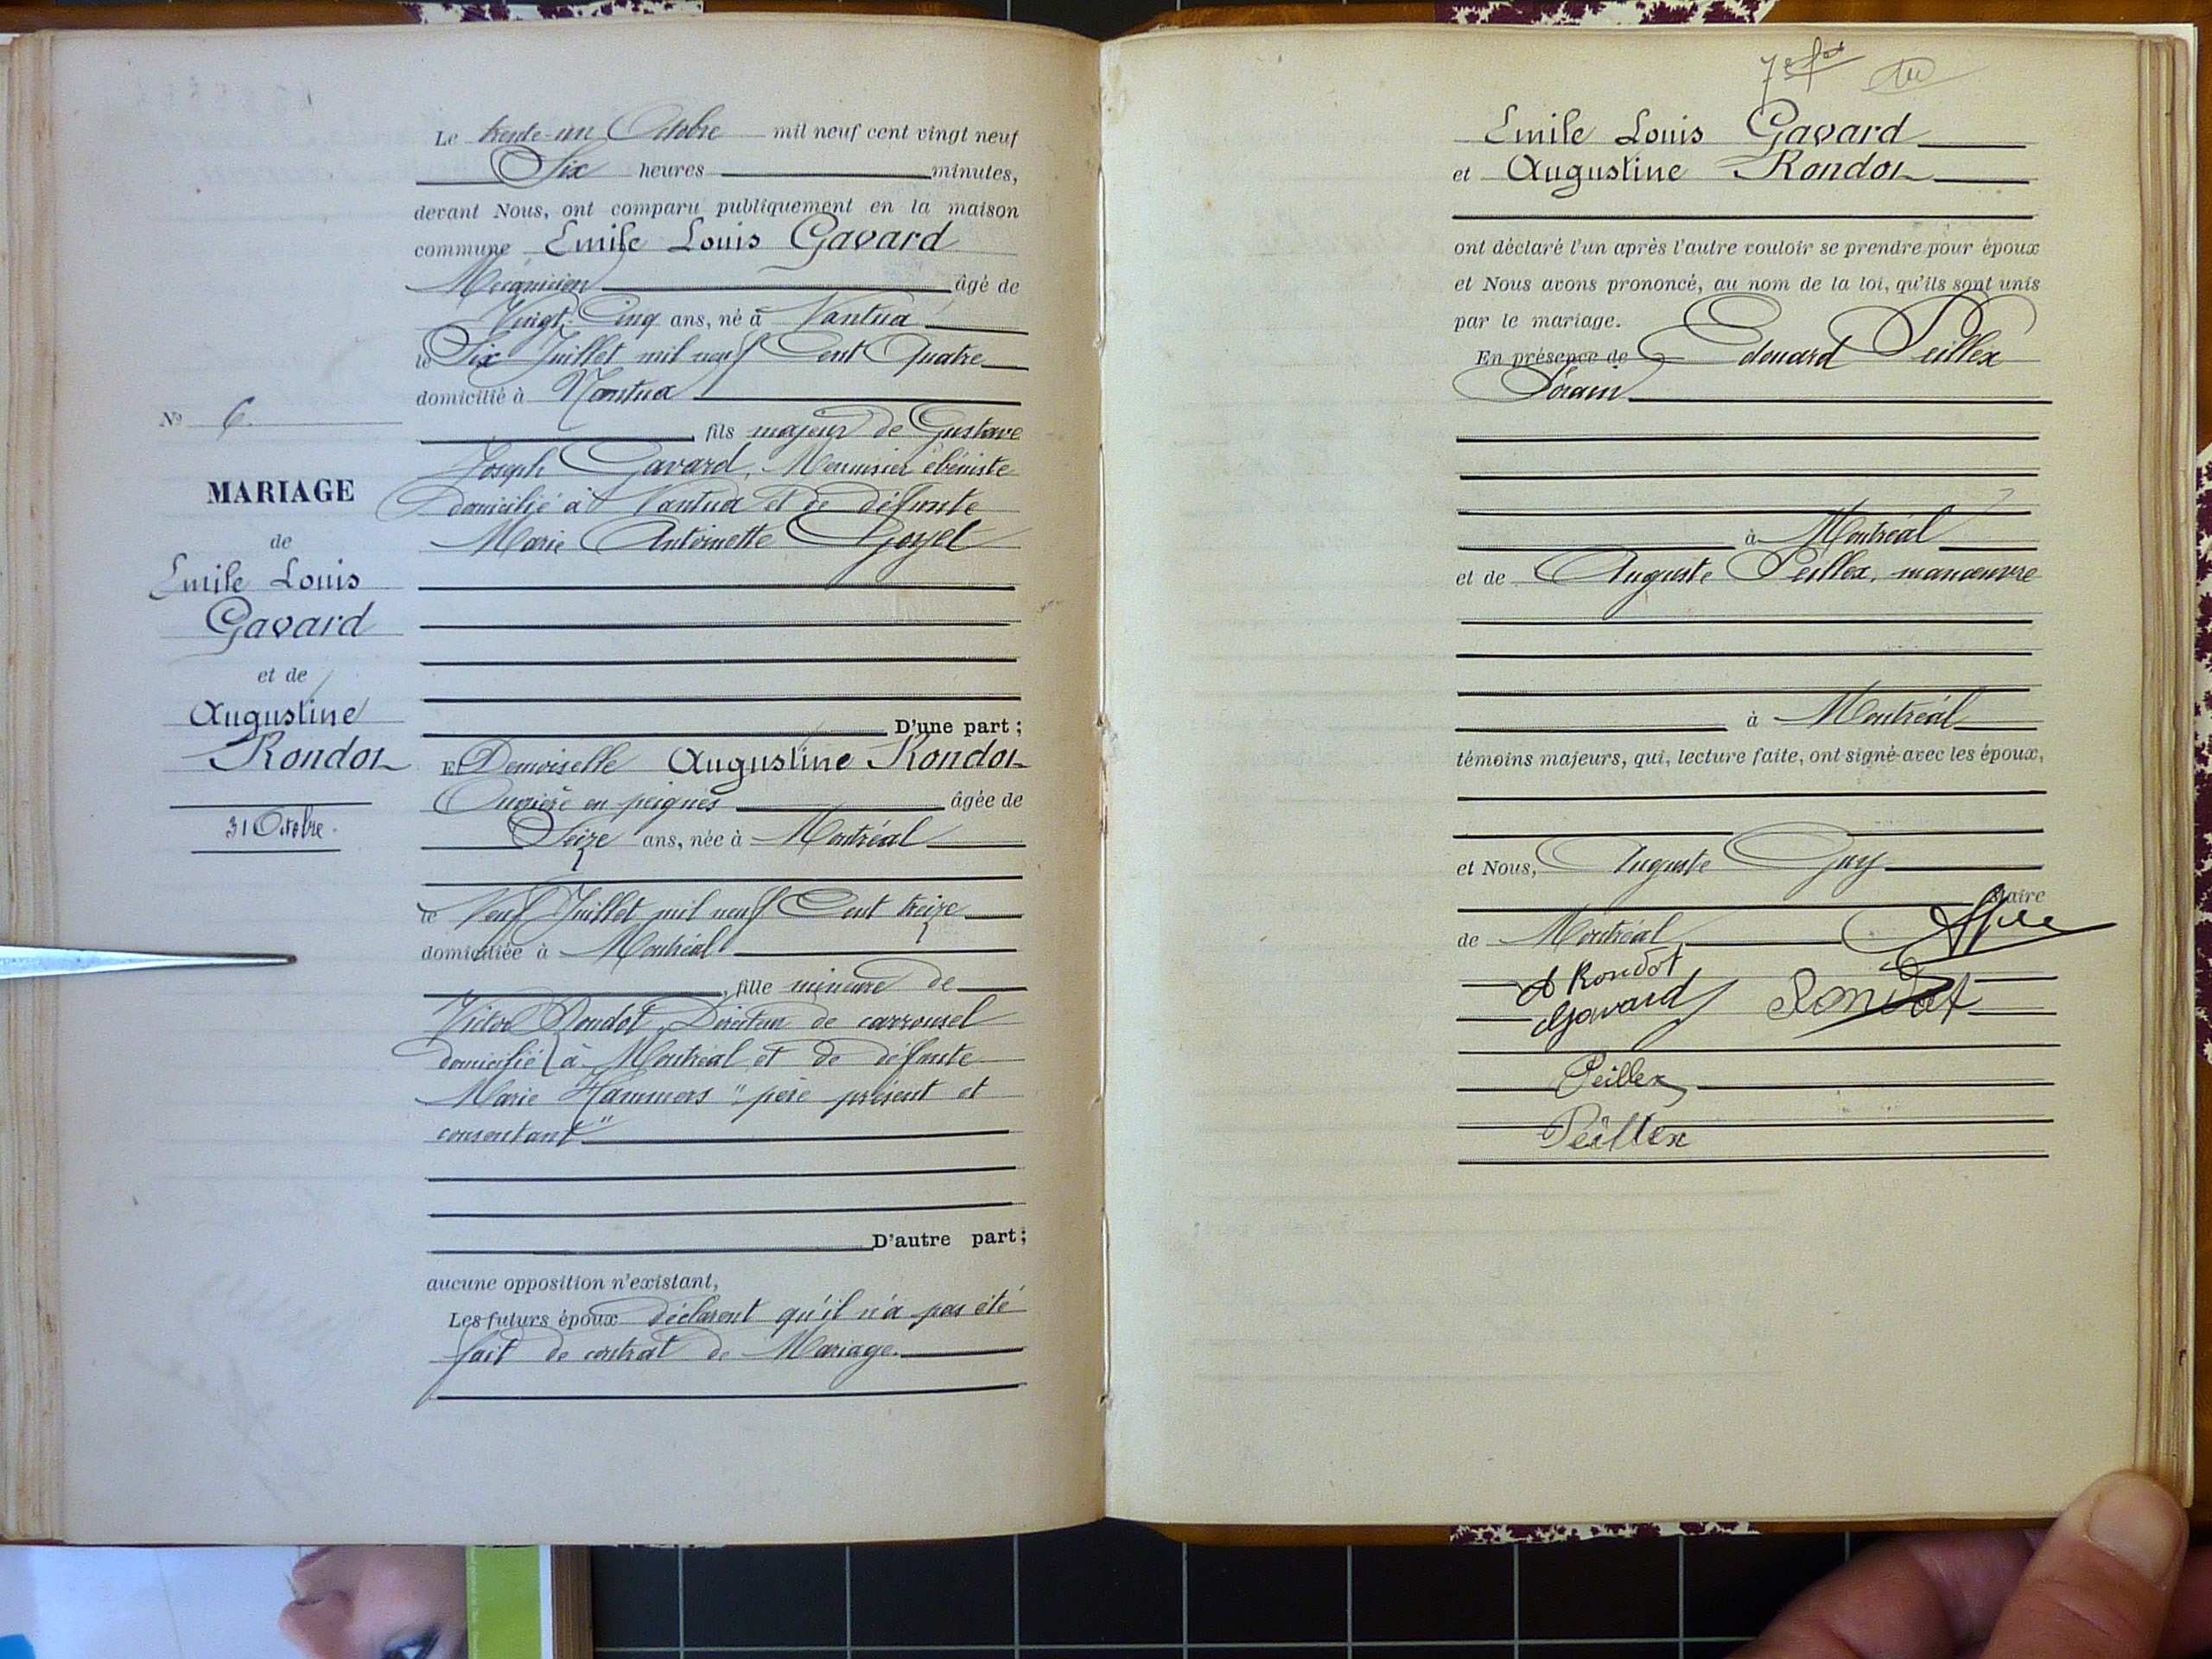 Le trente-un Octobre mil neuf cent vingt neuf
Six heures minutes,
devant Nous, ont comparu publiquement en la maison
commune Emile Louis Gavard
Mécanicien âgé de
Vingt-Cinq ans, né à Nantua
le Six Juillet mil neuf Cent Quatre
domicilié à Nantua
fils majeur de Gustave
Joseph Gavard, Menuisier ébéniste
domicilié à Nantua et de défunte
Marie Antoinette Goyet
D'une part;
Et Demoiselle Augustine Rondot
Ouvrière en peignes âgée de
Seize ans, née à Montréal
le Neuf Juillet mil neuf Cent treize
domiciliée à Montréal
, fille mineure de
Victor Rondot, Directeur de carrousel
domicilié à Montréal et de défunte
Marie Hammers " père présent et
consentant"
D'autre part;
aucune opposition n'existant,
Les futurs époux déclarent qu'il n'a pas été
fait de contrat de Mariage.
No 6.
MARIAGE
de
Emile Louis
Gavard
et de
Augustine
Rondot
31 Octobre.
Emile Louis Gavard
et Augustine Rondot
ont déclaré l'un après l'autre vouloir se prendre pour époux
et Nous avons prononcé, au nom de la loi, qu'ils sont unis
par le mariage.
En présence de Edouard Peillex
Forain
à Montréal
et de Auguste Peillex, manœuvre
à Montréal
témoins majeurs, qui, lecture faite, ont signé avec les époux,
et Nous, Auguste Guy
Maire
de Montréal
A Rondot
Gavard Rondot
Peillex
Peillex